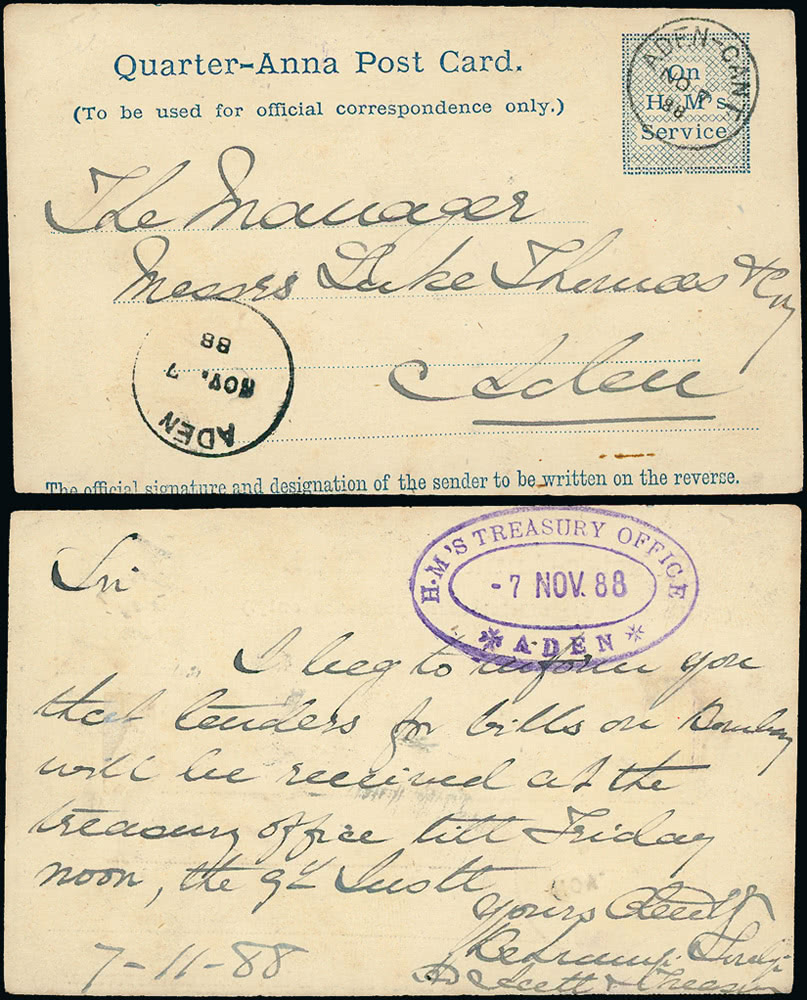 Quarter-Anna Post Card.
(To be used for official correspondence only.)
On
H.M's
Service
ADEN-CANT
NO 7
88
The Manager
Messrs Luke Thomas & Coy
Aden
ADEN
NOV. 7
88
The official signature and designation of the sender to be written on the reverse.
H.M'S TREASURY OFFICE
- 7 NOV. 88
ADEN
Sir
I beg to inform you
that tenders for bills on Bombay
will be received at the
treasury office till Friday
noon, the 9th Instt
Yours
7-11-88